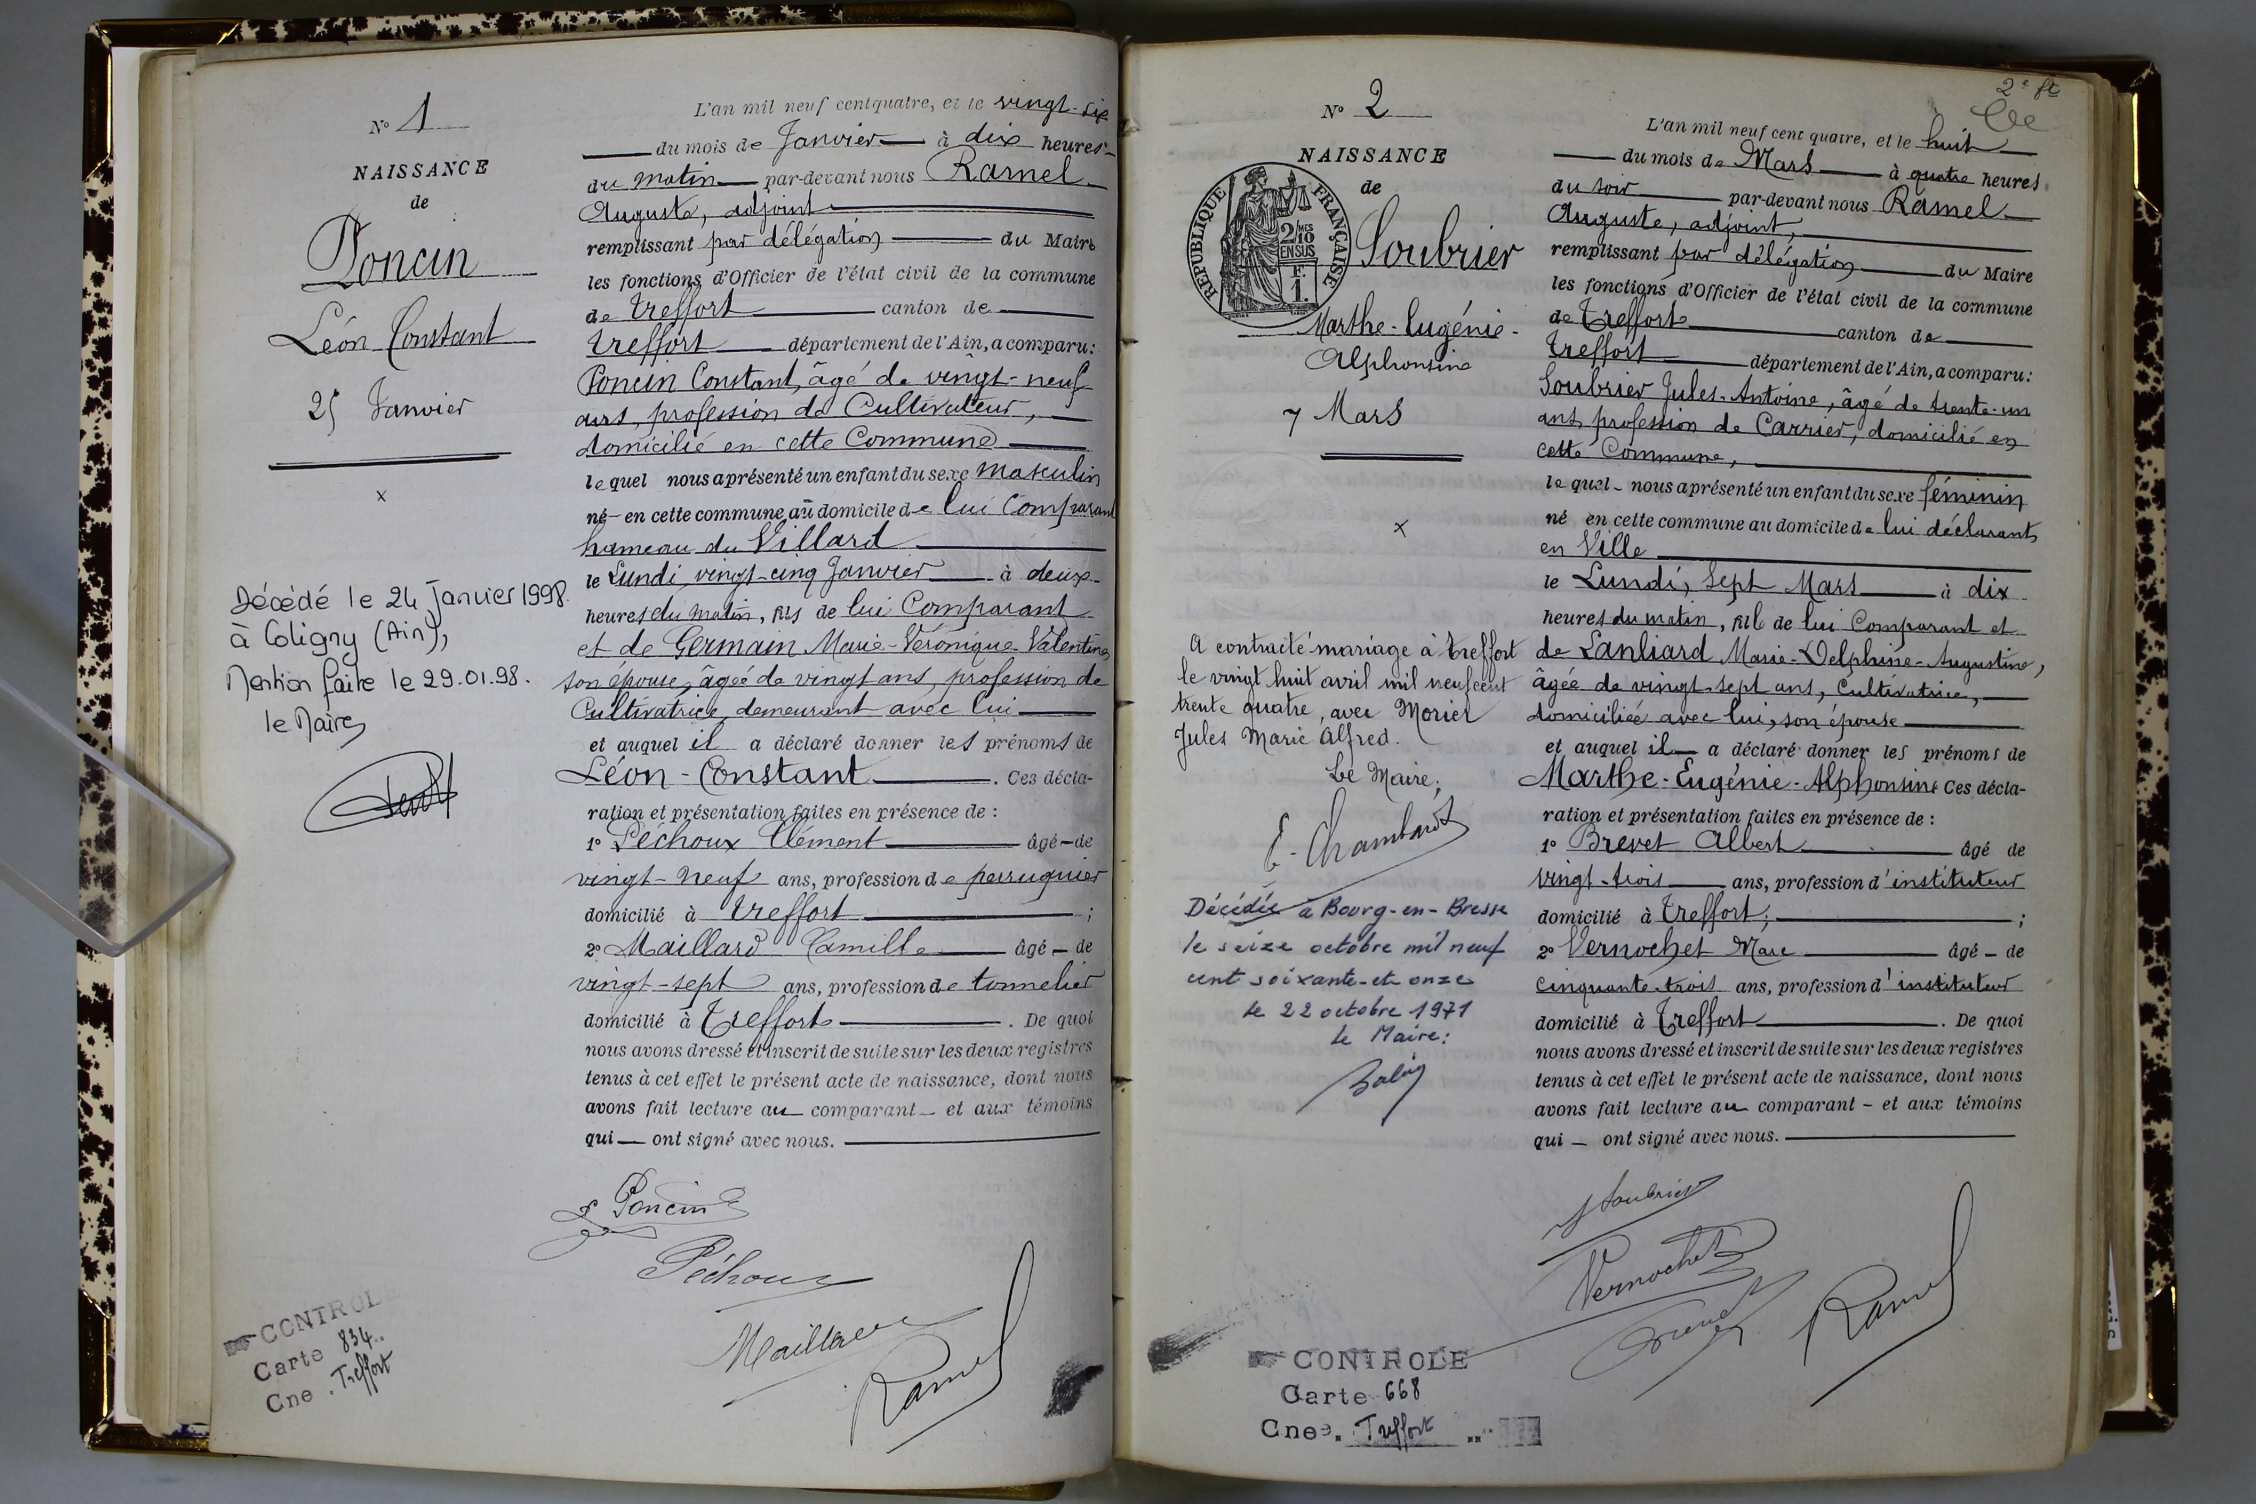 N° 1
NAISSANCE
de
Poncin
Léon Constant
25 Janvier
x
Décédé le 24 Janvier 1998.
à Coligny (Ain),
Mention faite le 29.01.98.
le Maire
CONTROLE
Carte 834
Cne. Treffort
L'an mil neuf cent quatre, et le vingt-six
du mois de Janvier à dix heures
du matin par-devant nous Ramel
Auguste, adjoint
remplissant par délégation du Maire
les fonctions d'Officier de l'état civil de la commune
de Treffort canton de
Treffort département de l'Ain, a comparu:
Poncin Constant, âgé de vingt-neuf
ans, profession de Cultivateur,
domicilié en cette Commune
lequel nous a présenté un enfant du sexe masculin
né en cette commune au domicile de lui Comparant
hameau du Villard
le Lundi, vingt-cinq Janvier à deux
heures du matin, fils de lui Comparant
et de Germain Marie-Véronique-Valentine
son épouse, âgée de vingt ans, profession de
Cultivatrice, demeurant avec lui
et auquel il a déclaré donner les prénoms de
Léon-Constant. Ces décla-
ration et présentation faites en présence de :
1° Péchoux Clément âgé de
vingt-neuf ans, profession de perruquier
domicilié à Treffort ;
2° Maillard Camille âgé de
vingt-sept ans, profession de tonnelier
domicilié à Treffort. De quoi
nous avons dressé et inscrit de suite sur les deux registres
tenus à cet effet le présent acte de naissance, dont nous
avons fait lecture au comparant et aux témoins
qui ont signé avec nous.
Poncin
Péchoux
Maillard
Ramel
2e ft
N° 2
NAISSANCE
de
RÉPUBLIQUE FRANÇAISE
2/10 MES
EN SUS
F.
1.
Soubrier
Marthe-Eugénie-
Alphonsine
7 Mars
x
A contracté mariage à Treffort
le vingt huit avril mil neuf cent
trente quatre, avec Morier
Jules Marie Alfred.
Le Maire;
E. Chambard
Décédée à Bourg-en-Bresse
le seize octobre mil neuf
cent soixante-et-onze
le 22 octobre 1971
Le Maire:
CONTROLE
Carte 668
Cne. Treffort
L'an mil neuf cent quatre, et le huit
du mois de Mars à quatre heures
du soir par-devant nous Ramel
Auguste, adjoint,
remplissant par délégation du Maire
les fonctions d'Officier de l'état civil de la commune
de Treffort canton de
Treffort département de l'Ain, a comparu:
Soubrier Jules-Antoine, âgé de trente-un
ans, profession de Carrier, domicilié en
cette Commune,
lequel nous a présenté un enfant du sexe féminin
né en cette commune au domicile de lui déclarant
en Ville
le Lundi, Sept Mars à dix
heures du matin, fille de lui Comparant et
de Lanliard Marie-Delphine-Augustine,
âgée de vingt-sept ans, Cultivatrice,
domiciliée avec lui, son épouse
et auquel il a déclaré donner les prénoms de
Marthe-Eugénie-Alphonsine Ces décla-
ration et présentation faites en présence de :
1° Brevet Albert âgé de
vingt-trois ans, profession d'instituteur
domicilié à Treffort; ;
2° Vernochet Marc âgé de
cinquante-trois ans, profession d'instituteur
domicilié à Treffort. De quoi
nous avons dressé et inscrit de suite sur les deux registres
tenus à cet effet le présent acte de naissance, dont nous
avons fait lecture au comparant et aux témoins
qui ont signé avec nous.
Soubrier
Vernochet
Brevet
Ramel